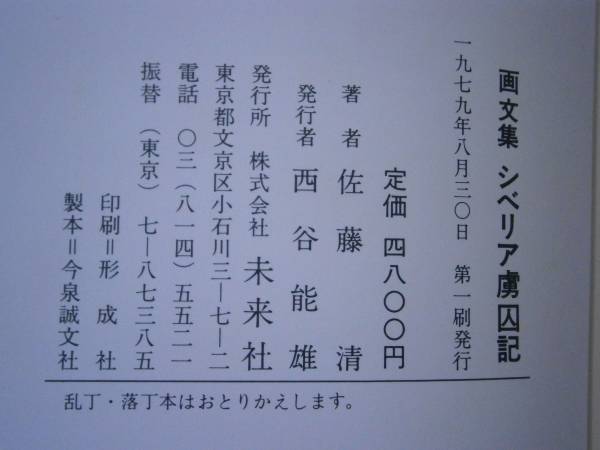 画文集 シベリア虜囚記
一九七九年八月三〇日 第一刷発行
定価 四八〇〇円
著者 佐藤 清
発行者 西谷能雄
発行所 株式会社 未来社
東京都文京区小石川三―七―二
電話 〇三(八一四)五五二一
振替(東京)七―八七三八五
印刷=形成社
製本=今泉誠文社
乱丁・落丁本はおとりかえします。